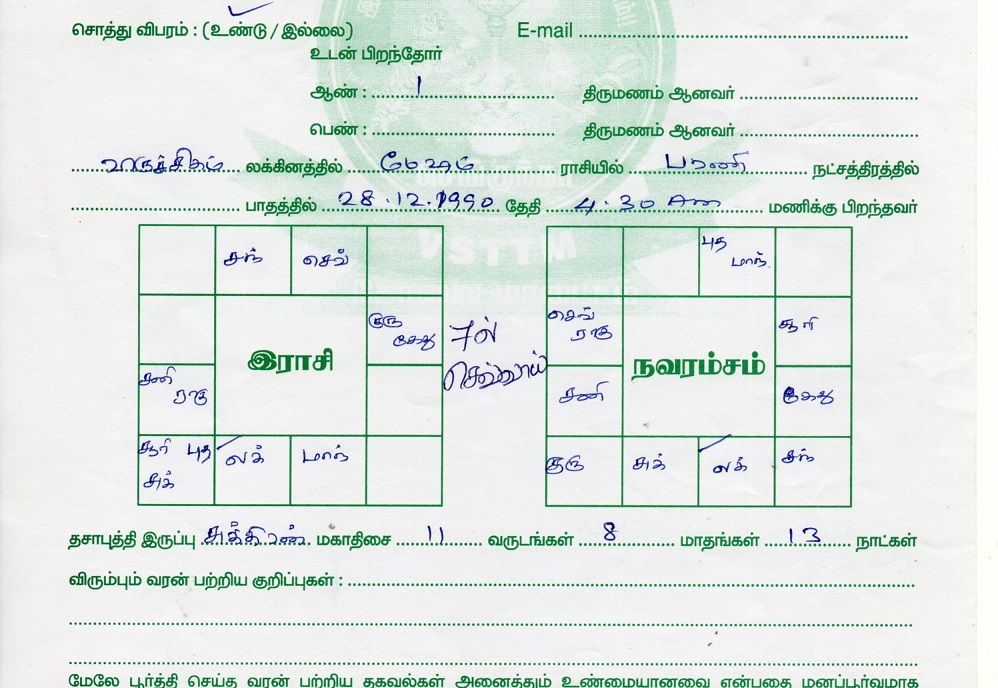 சொத்து விபரம் : (உண்டு / இல்லை) E-mail
உடன் பிறந்தோர்
ஆண் : 1 திருமணம் ஆனவர்
பெண் : திருமணம் ஆனவர்
லக்கினத்தில் மேஷம் ராசியில் பரணி நட்சத்திரத்தில்
பாதத்தில் 28.12.1990 தேதி 4.30 மணிக்கு பிறந்தவர்
VSTTM
சந் செவ்
புத மாந்
குரு கேது
செவ் ராகு
சூரி
இராசி
7ல் செவ்வாய்
நவரம்சம்
சனி ராகு
சனி
கேது
சூரி புத சுக்
லக் மாந்
குரு சுக் லக் சந்
தசாபுத்தி இருப்பு சுக்கிரன் மகாதிசை 11 வருடங்கள் 8 மாதங்கள் 13 நாட்கள்
விரும்பும் வரன் பற்றிய குறிப்புகள் :
மேலே பூர்த்தி செய்த வரன் பற்றிய தகவல்கள் அனைத்தும் உண்மையானவை என்பதை மனப்பூர்வமாக